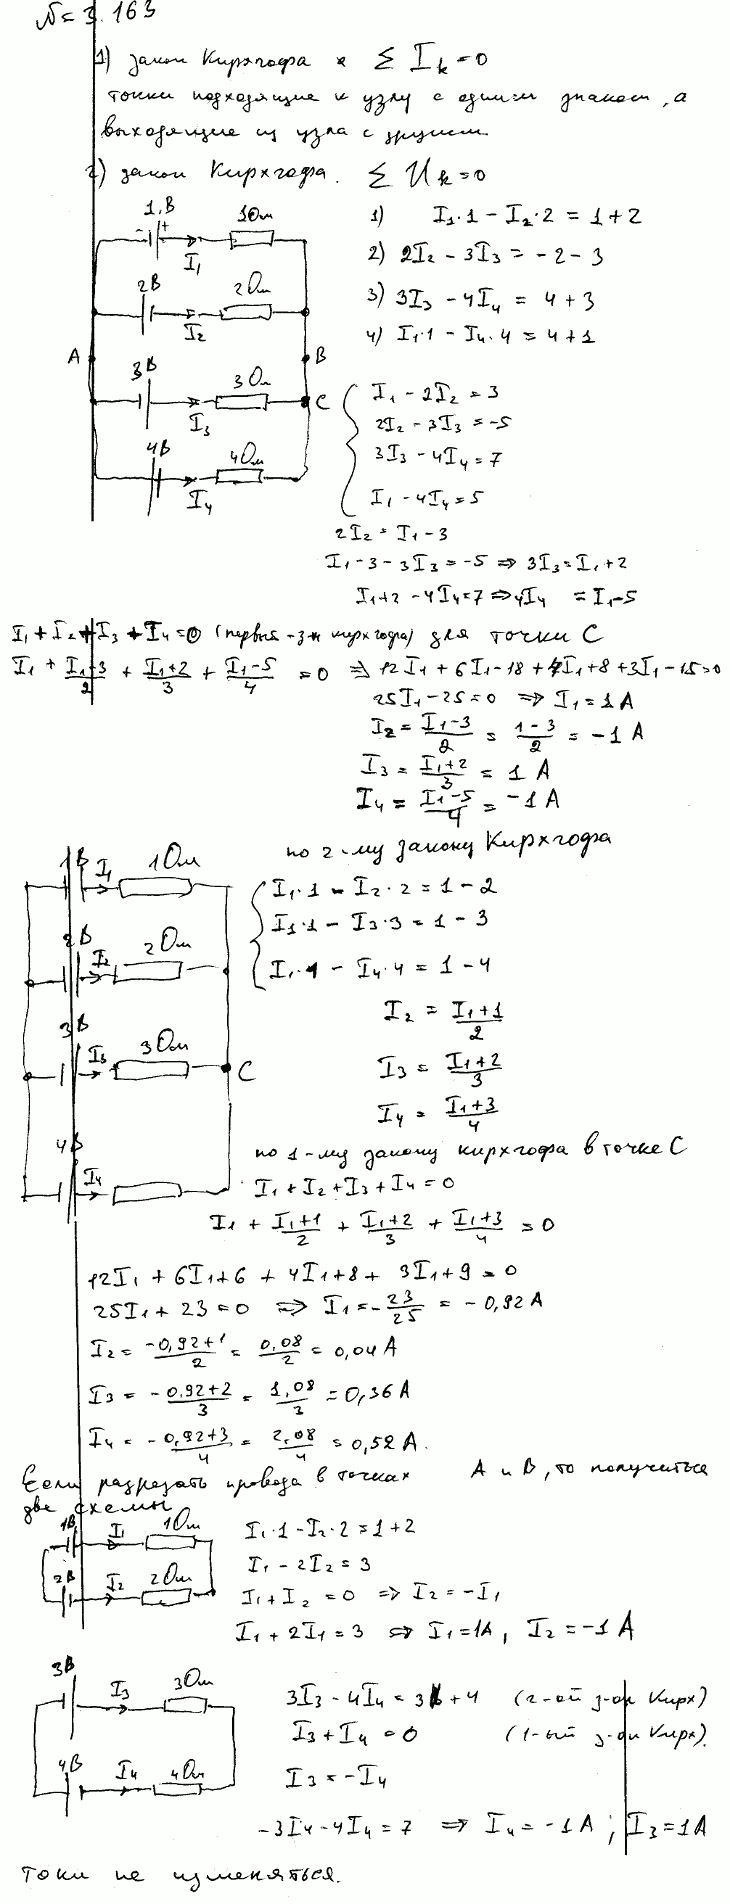 № 3.163
1) закон Кирхгофа Σ I_k = 0
токи подходящие к узлу с одним знаком, а
выходящие из узла с другим.
2) закон Кирхгофа. Σ U_k = 0
1 В 1 Ом
- +
I₁
2 В 2 Ом
I₂
A B
3 В 3 Ом
C
I₃
4 В 4 Ом
I₄
1) I₁·1 − I₂·2 = 1 + 2
2) 2I₂ − 3I₃ = −2 − 3
3) 3I₃ − 4I₄ = 4 + 3
4) I₁·1 − I₄·4 = 4 + 1
I₁ − 2I₂ = 3
2I₂ − 3I₃ = −5
3I₃ − 4I₄ = 7
I₁ − 4I₄ = 5
2I₂ = I₁ − 3
I₁ − 3 − 3I₃ = −5 ⇒ 3I₃ = I₁ + 2
I₁ + 2 − 4I₄ = 7 ⇒ 4I₄ = I₁ − 5
I₁ + I₂ + I₃ + I₄ = 0 (первый з-н Кирхгофа) для точки C
I₁ + (I₁−3)/2 + (I₁+2)/3 + (I₁−5)/4 = 0 ⇒ 12I₁ + 6I₁ − 18 + 4I₁ + 8 + 3I₁ − 15 = 0
25I₁ − 25 = 0 ⇒ I₁ = 1 А
I₂ = (I₁−3)/2 = (1−3)/2 = −1 А
I₃ = (I₁+2)/3 = 1 А
I₄ = (I₁−5)/4 = −1 А
по 2-му закону Кирхгофа
1 В I₁ 1 Ом
2 В I₂ 2 Ом
3 В I₃ 3 Ом
C
4 В I₄
I₁·1 − I₂·2 = 1 − 2
I₁·1 − I₃·3 = 1 − 3
I₁·1 − I₄·4 = 1 − 4
I₂ = (I₁+1)/2
I₃ = (I₁+2)/3
I₄ = (I₁+3)/4
по 1-му закону Кирхгофа в точке C
I₁ + I₂ + I₃ + I₄ = 0
I₁ + (I₁+1)/2 + (I₁+2)/3 + (I₁+3)/4 = 0
12I₁ + 6I₁ + 6 + 4I₁ + 8 + 3I₁ + 9 = 0
25I₁ + 23 = 0 ⇒ I₁ = −23/25 = −0,92 А
I₂ = (−0,92+1)/2 = 0,08/2 = 0,04 А
I₃ = (−0,92+2)/3 = 1,08/3 = 0,36 А
I₄ = (−0,92+3)/4 = 2,08/4 = 0,52 А.
Если разрезать провода в точках A и B, то получиться
две схемы
1 В I₁ 1 Ом
2 В I₂ 2 Ом
I₁·1 − I₂·2 = 1 + 2
I₁ − 2I₂ = 3
I₁ + I₂ = 0 ⇒ I₂ = −I₁
I₁ + 2I₁ = 3 ⇒ I₁ = 1 А, I₂ = −1 А
3 В I₃ 3 Ом
4 В I₄ 4 Ом
3I₃ − 4I₄ = 3 + 4 (2-ой з-он Кирх)
I₃ + I₄ = 0 (1-ый з-он Кирх).
I₃ = −I₄
−3I₄ − 4I₄ = 7 ⇒ I₄ = −1 А; I₃ = 1 А
Токи не изменяться.